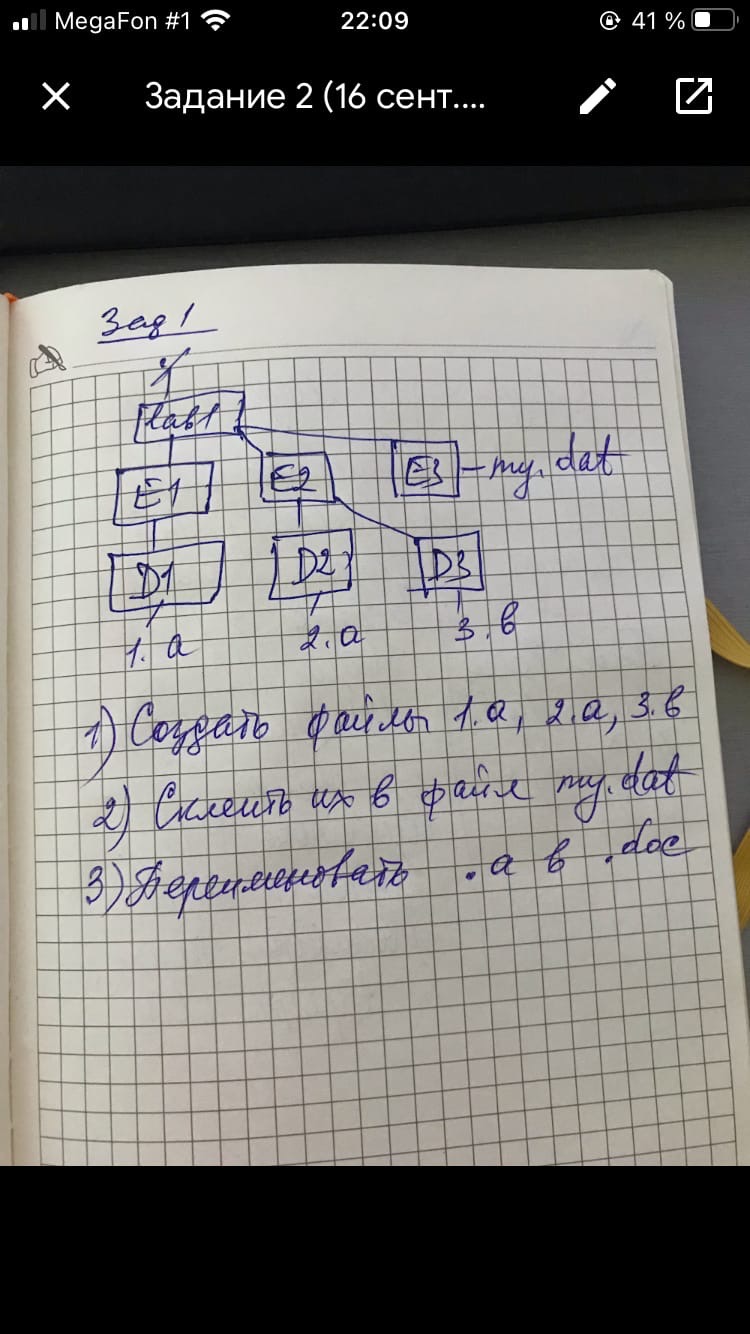 MegaFon #1 22:09 41 %
Задание 2 (16 сент....
Зад 1
lab1
E1 E2 E3 - my.dat
D1 D2 D3
1.a 2.a 3.в
1) Создать файлы 1.a, 2.a, 3.в
2) Склеить их в файл my.dat
3) Переименовать .a в .doc